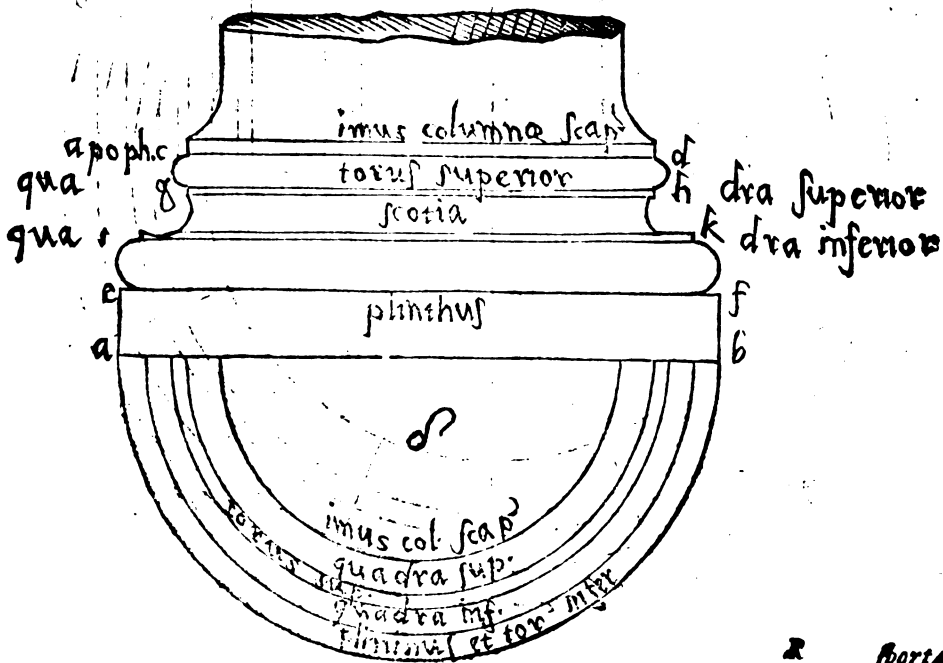 imus columnæ scap⁹
apoph. c d
torus superior
qua g h dra superior
scotia
qua k dra inferior
e f
plinthus
a b
imus col. scap⁹
torus sup.
quadra sup.
quadra inf.
plinthus et tor⁹ infer
R